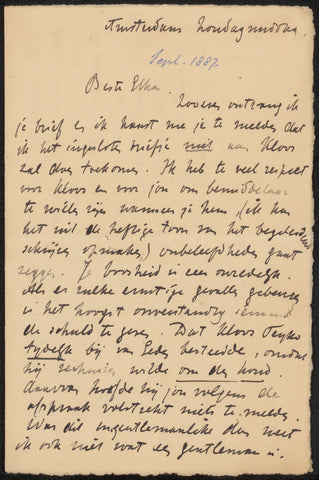 Amsterdam Zondagmiddag.
Sept. 1887
Beste Etha.
Zooeven ontvang ik
je brief en ik haast me je te melden dat
ik het ingesloten briefje niet aan Kloos
zal doen toekomen. Ik heb te veel respect
voor Kloos en voor jou om bemiddelaar
te willen zijn wanneer je hem (ik kan
het uit de heftige toon van het begeleidend
schrijven opmaken) onbeleefdheden gaat
zeggen. Je boosheid is zeer onredelijk.
Als er zulke ernstige gevallen gebeuren
is het hoogst onverstandig iemand
de schuld te geven. Dat Kloos
tydelyk bij van Eeden besteedde, omdat
hij verhuizen wilde om den hond.
daarvan hoefde hij jou volgens de
afspraak volstrekt niets te melden.
Was dit ungentlemanlike dan weet
ik ook niet wat een gentleman is.